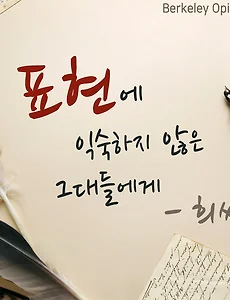 Berkeley Opi
표현에
익숙하지 않은
그대들에게